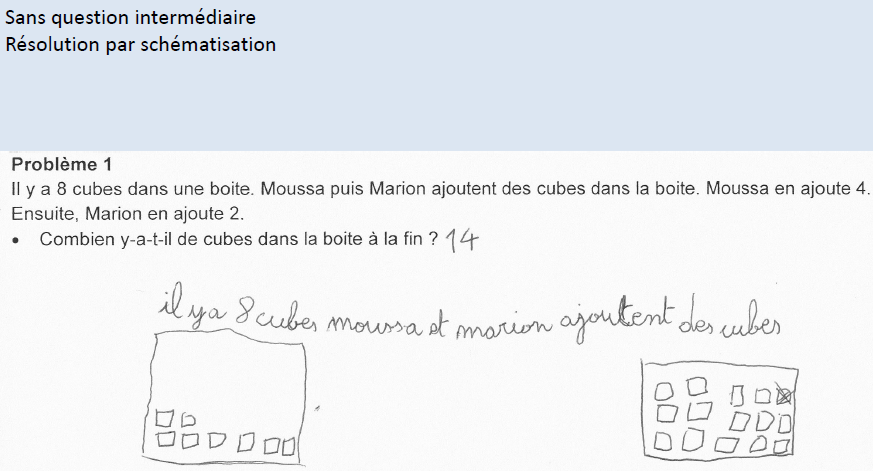 Sans question intermédiaire
Résolution par schématisation
Problème 1
Il y a 8 cubes dans une boite. Moussa puis Marion ajoutent des cubes dans la boite. Moussa en ajoute 4.
Ensuite, Marion en ajoute 2.
• Combien y-a-t-il de cubes dans la boite à la fin ? 14
il y a 8 cubes moussa et marion ajoutent des cubes